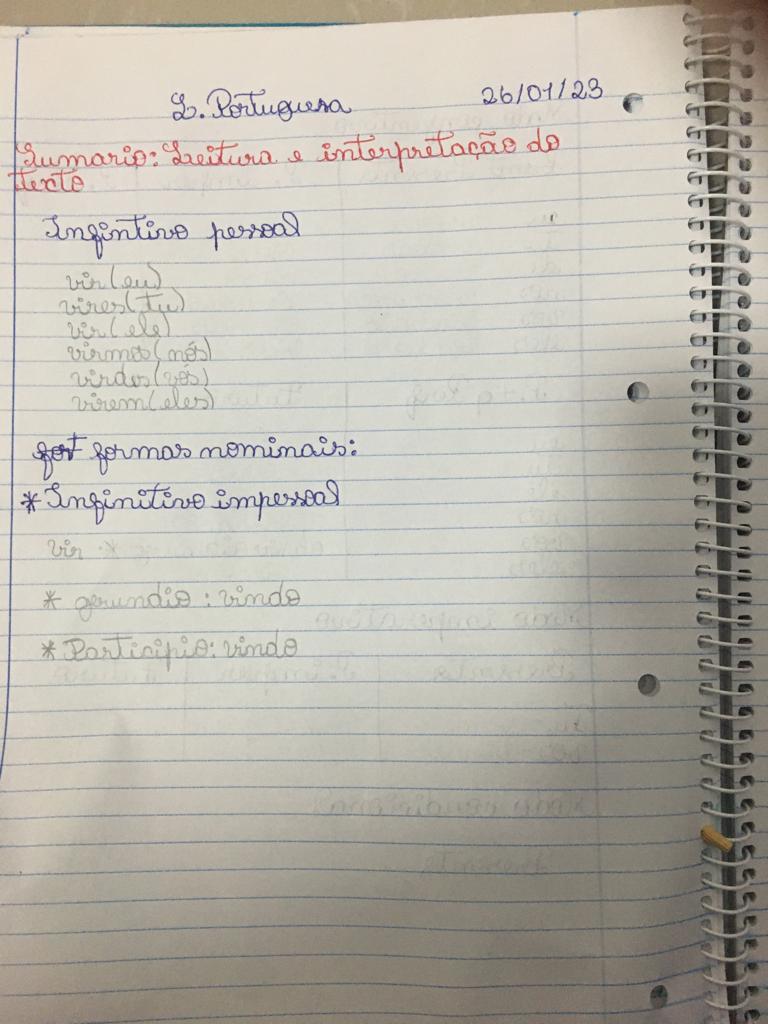 L. Portuguesa 26/01/23
Sumario: Leitura e interpretação do
texto
Infintivo pessoal
vir (eu)
vires (tu)
vir (ele)
virmos (nós)
virdes (vós)
virem (eles)
formas nominais:
* Infinitivo impessoal
vir
* gerundio : vindo
* Participio: vindo